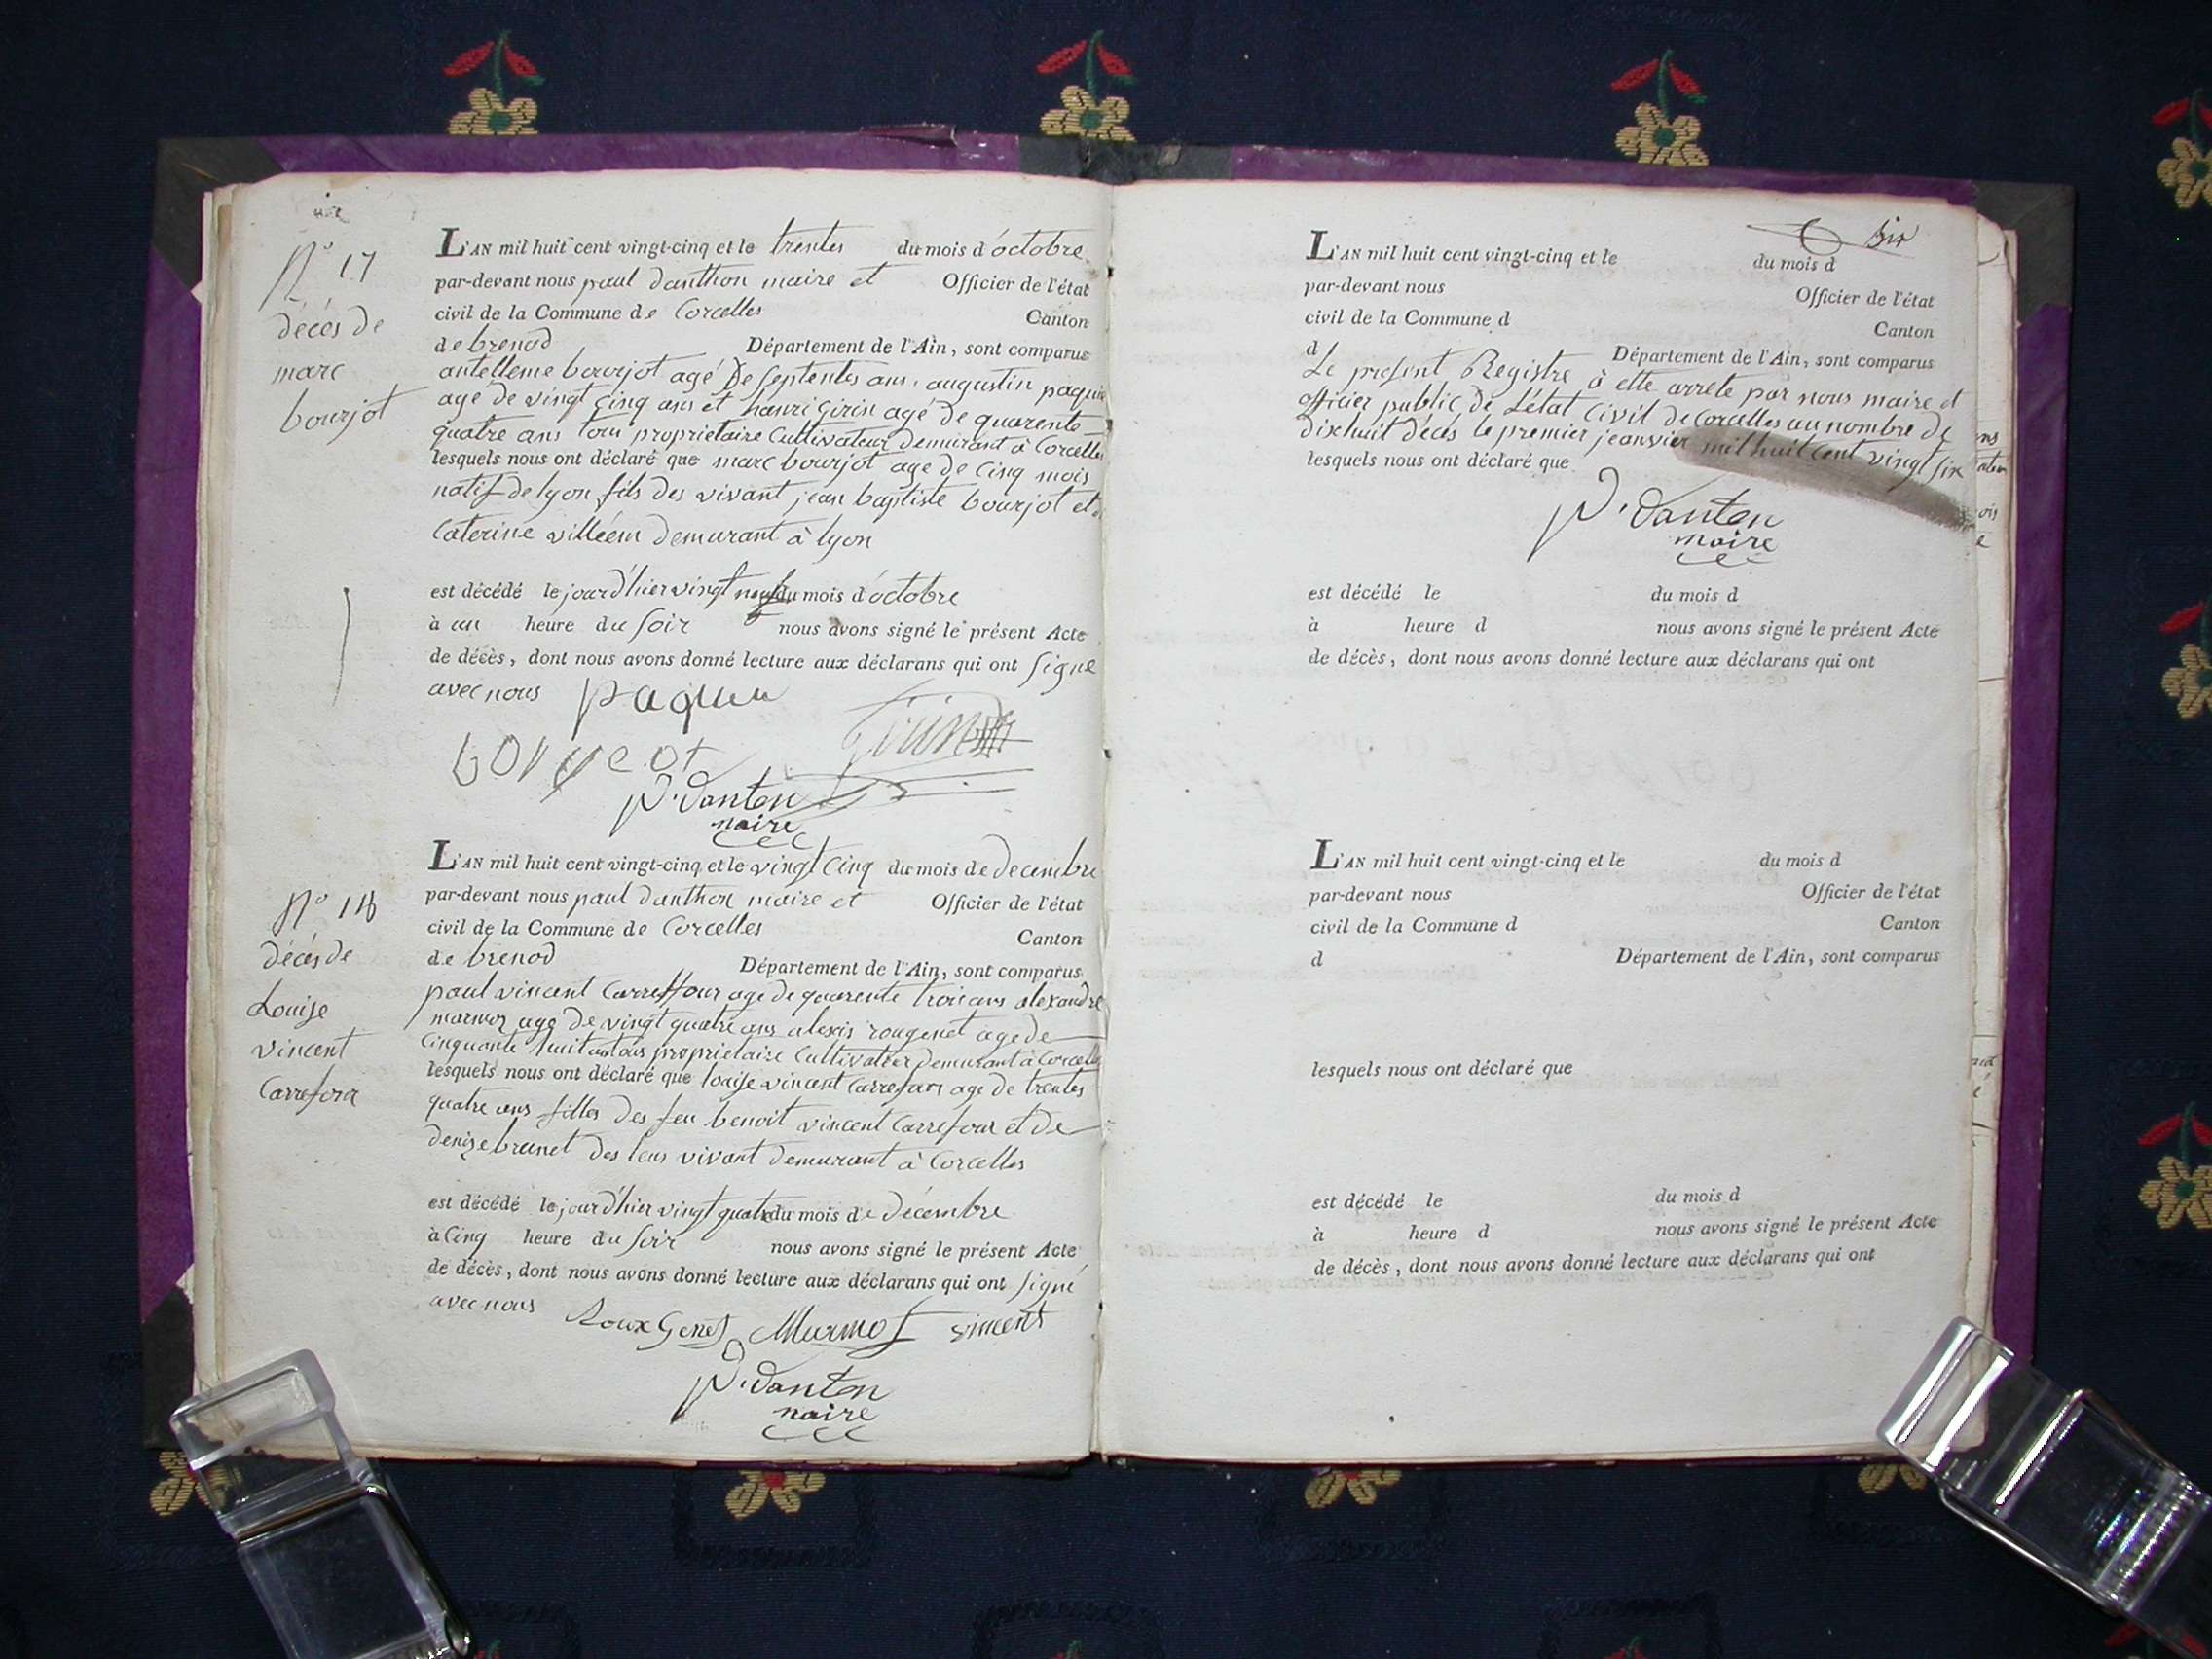 N° 17
décès de
marc
bourjot
L'AN mil huit cent vingt-cinq et le trentes du mois d'octobre
par-devant nous paul danthon maire et Officier de l'état
civil de la Commune de Corcelles Canton
de brenod Département de l'Ain, sont comparus
antelleme bourjot agé de septentes ans, augustin paquie
agé de vingt cinq ans et hanri girin agé de quarente
quatre ans tous proprietaire Cultivateur demurant à Corcelles
lesquels nous ont déclaré que marc bourjot age de cinq mois
natif de lyon fils des vivant jean baptiste bourjot et
Caterine demurant à lyon
est décédé le jourd'hier vingt neuf du mois d'octobre
à un heure du soir nous avons signé le présent Acte
de décès, dont nous avons donné lecture aux déclarans qui ont signé
avec nous
P. danton
maire
N° 18
décés de
Louise
vincent
Carrefour
L'AN mil huit cent vingt-cinq et le vingt Cinq du mois de decembre
par-devant nous paul danthon maire et Officier de l'état
civil de la Commune de Corcelles Canton
de brenod Département de l'Ain, sont comparus
paul vincent Carreffour age de quarente trois ans alexandre
marmoz age de vingt quatre ans alexis rougenet age de
Cinquante huit ans tous proprietaire Cultivateur demurant à Corcelles
lesquels nous ont déclaré que louise vincent Carrefour age de trentes
quatre ans filles des feu benoit vincent Carrefour et de
denize brunet des leur vivant demurant à Corcelles
est décédé le jourd'hier vingt quatre du mois de décembre
à Cinq heure du soir nous avons signé le présent Acte
de décès, dont nous avons donné lecture aux déclarans qui ont signé
avec nous Roux Genet Murmot vincent
P. danton
maire
six
L'AN mil huit cent vingt-cinq et le du mois d
par-devant nous Officier de l'état
civil de la Commune d Canton
d Département de l'Ain, sont comparus
Le present Registre à ette arrete par nous maire et
officier public de l'état Civil de Corcelles au nombre de
dixhuit décès le premier jeanvier mil huit Cent vingt six
lesquels nous ont déclaré que
P. danton
maire
est décédé le du mois d
à heure d nous avons signé le présent Acte
de décès, dont nous avons donné lecture aux déclarans qui ont
L'AN mil huit cent vingt-cinq et le du mois d
par-devant nous Officier de l'état
civil de la Commune d Canton
d Département de l'Ain, sont comparus
lesquels nous ont déclaré que
est décédé le du mois d
à heure d nous avons signé le présent Acte
de décès, dont nous avons donné lecture aux déclarans qui ont